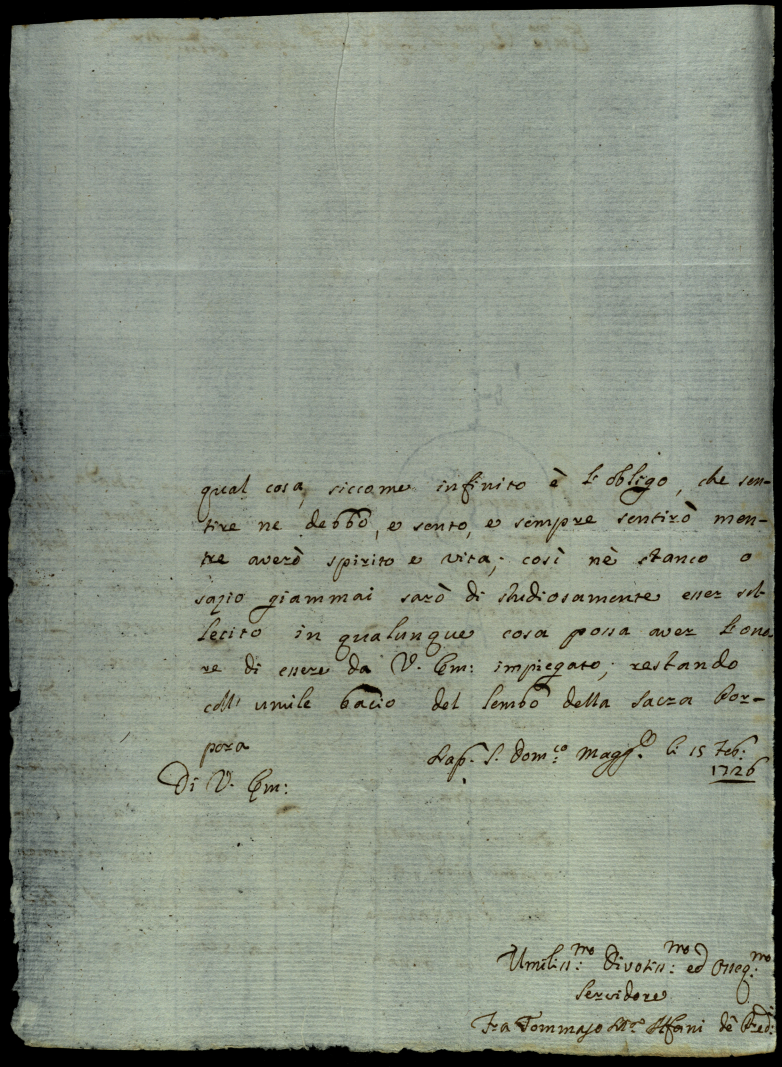 qual cosa, siccome infinito è l'obligo, che sen-
tire ne debbo, e sento, e sempre sentirò men-
tre averò spirito e vita; così nè stanco o
sazio giammai sarò di studiosamente esser sol-
lecito in qualunque cosa possa aver l'ono
re di essere da V. Em: impiegato; restando
coll' umile bacio del lembo della sacra Por-
pora
Nap. S. Dom.co Magg.e li 15 Feb:
1726
Di V. Em:
Umiliss:mo Divotiss:mo ed Osseq:mo
Servidore
Fra Tommaso M.a Alfani de' Pred: